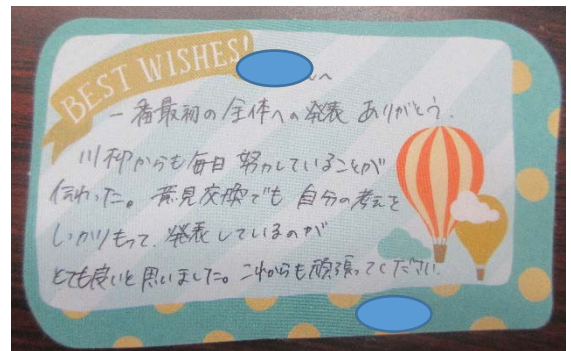 BEST WISHES!
へ
一番最初の全体への発表 ありがとう.
川柳からも毎日 努力していることが
伝わった。意見交換でも 自分の考えを
しっかりもって、発表しているのが
とても良いと思いました。これからも頑張ってください.